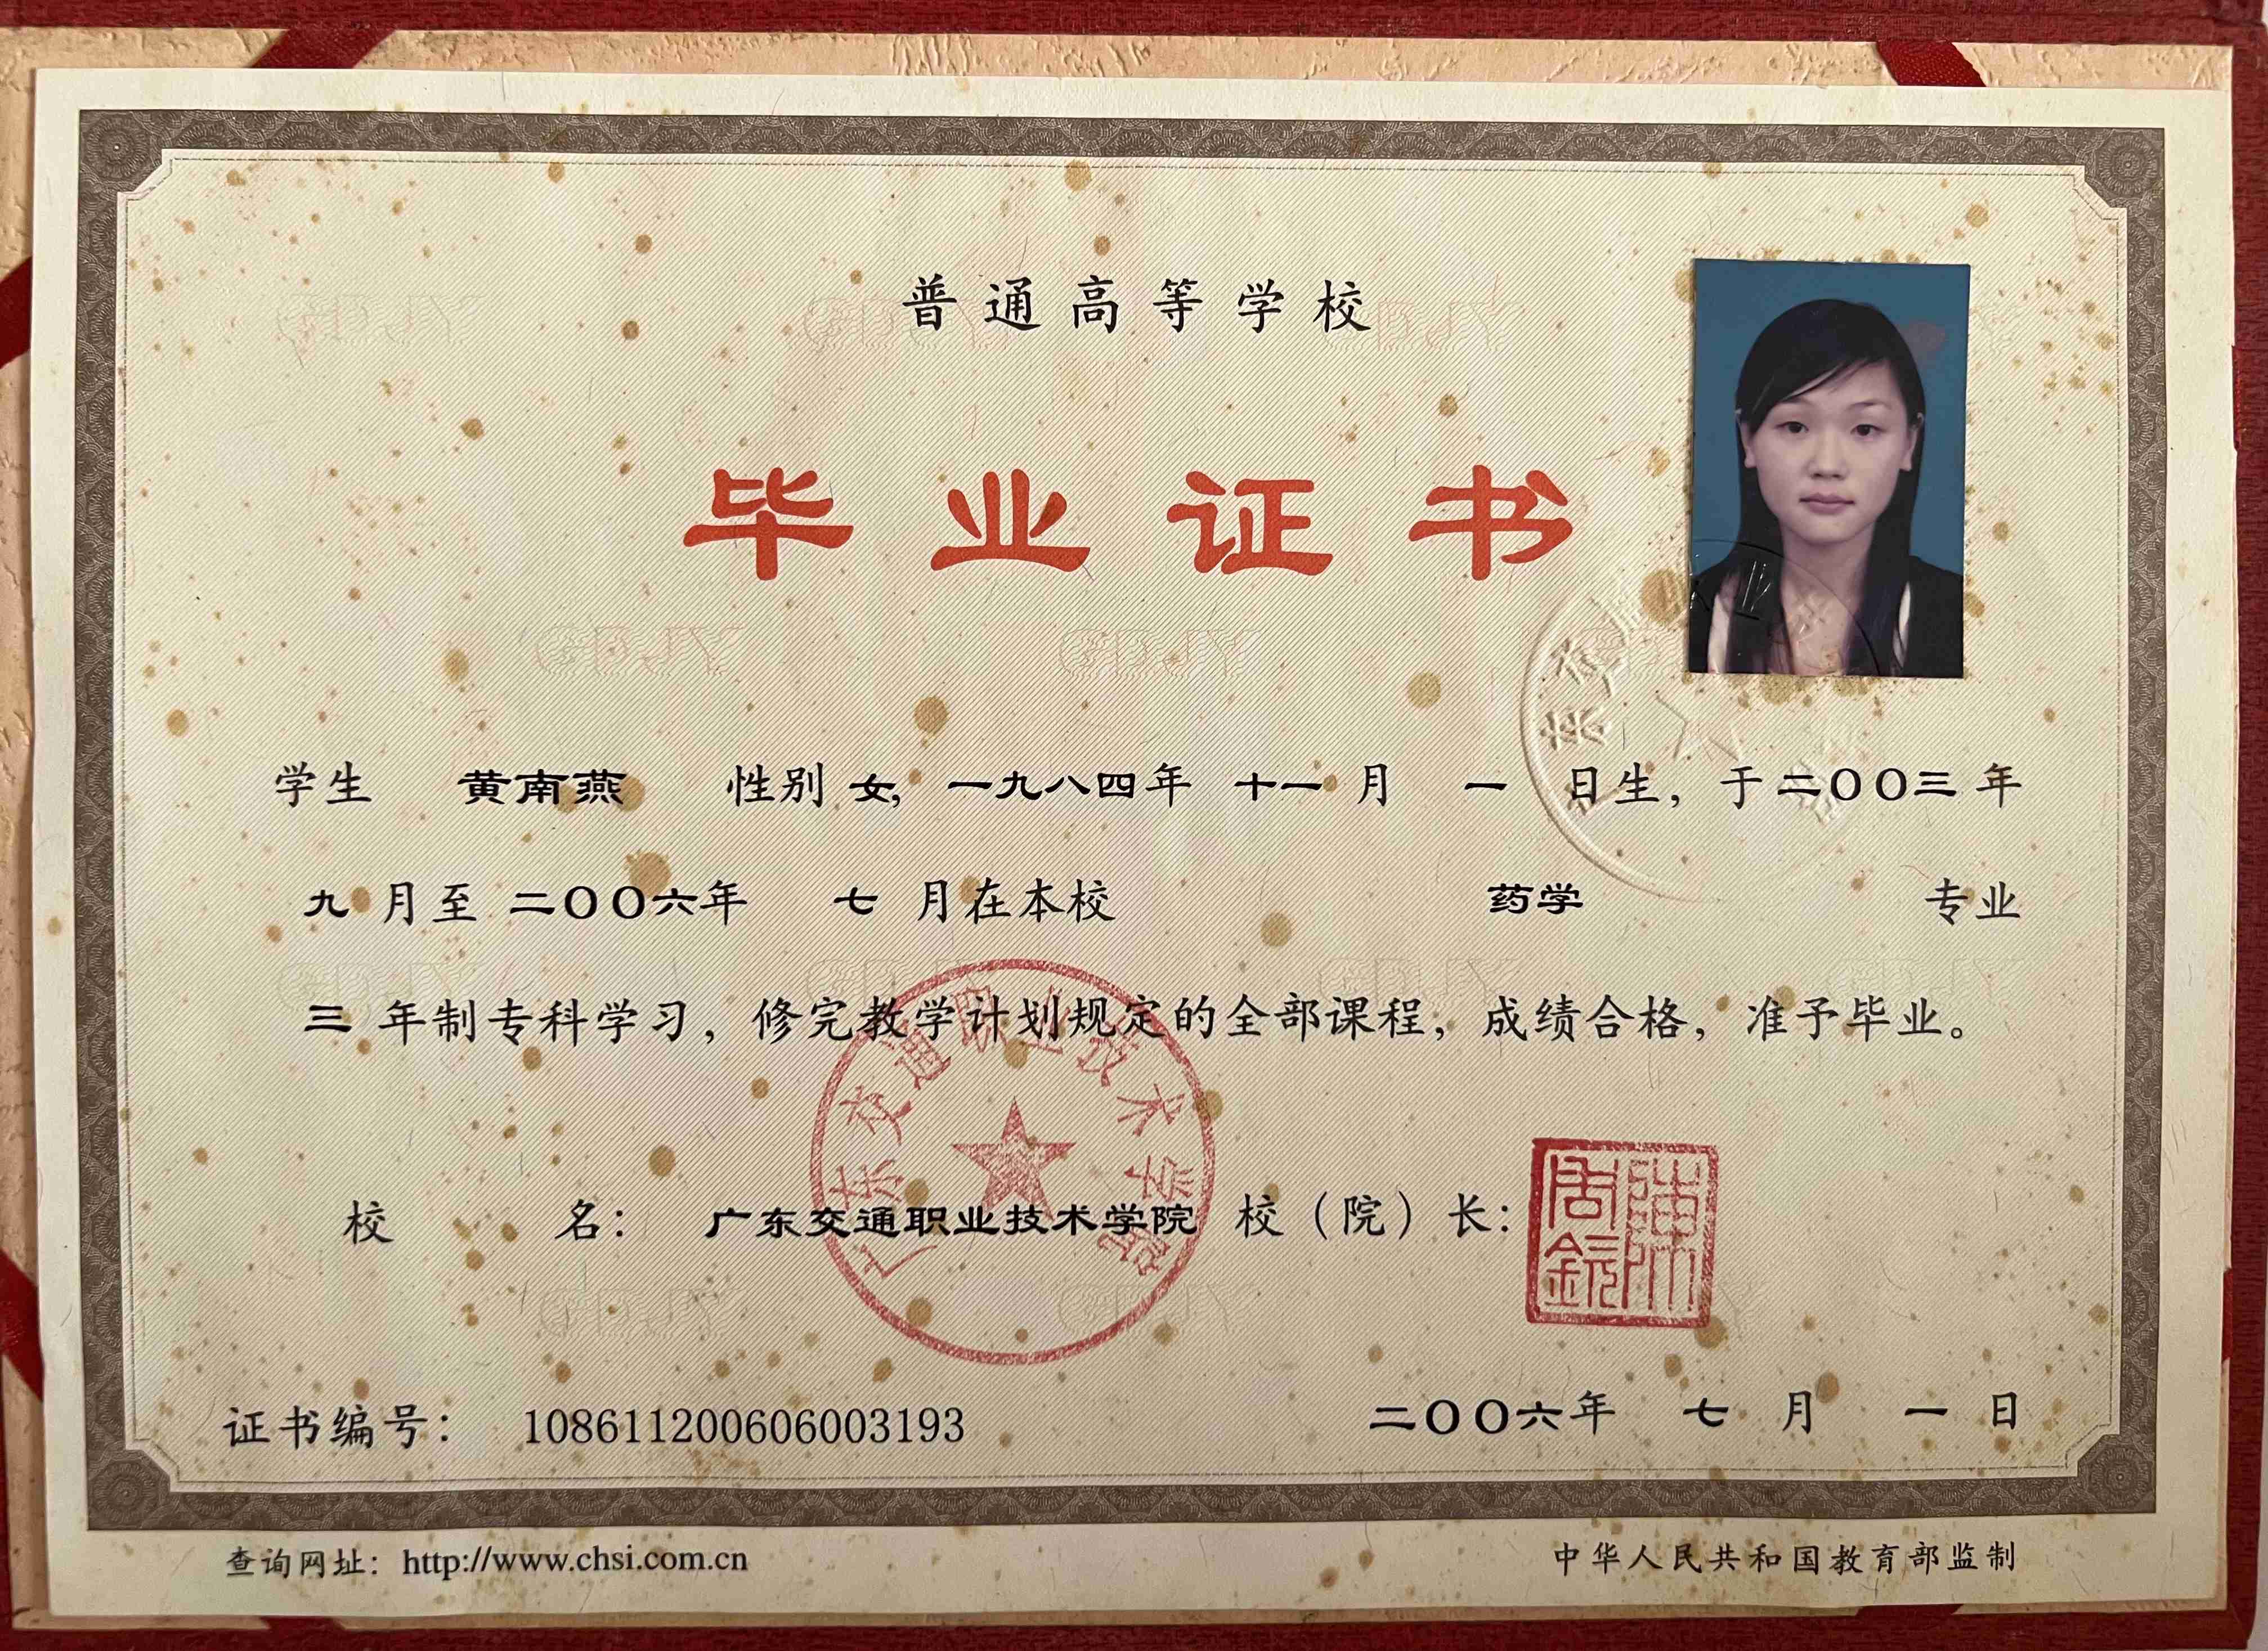 普通高等学校
毕业证书
学生 黄南燕 性别 女, 一九八四年 十一 月 一 日生，于二〇〇三年
九 月至 二〇〇六年 七 月在本校 药学 专业
三 年制专科学习，修完教学计划规定的全部课程，成绩合格，准予毕业。
广东交通职业技术学院
校 名： 广东交通职业技术学院 校（院）长：
证书编号： 108611200606003193 二〇〇六年 七 月 一 日
查询网址：http://www.chsi.com.cn 中华人民共和国教育部监制